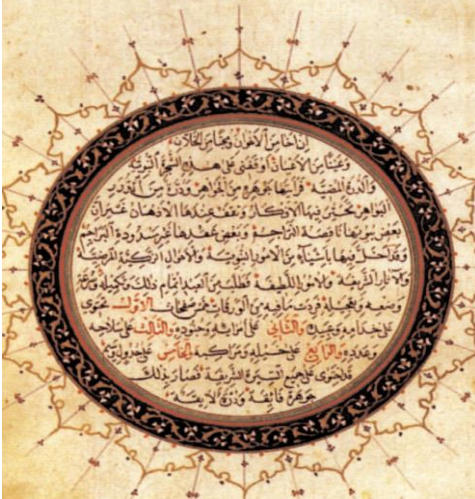 إن أخا من الإخوان ومحبا من الخلان
وعينا من الأعيان أوقفني على هذه النسخة النبوية
والدرة المضيئة فرأيتها جوهرة من الجواهر ودرة من الدرر
البواهر تحير فيها الأفكار وتقف عندها الأذهان غير أن
بعض بيوتها ناقصة التراجمة وبعض عقدها غير مسرودة التراجم
وقد أخل فيها بأشياء من الأمور النبوية والأحوال الزكية المرضية
والآثار الشريفة والأمور اللطيفة فطلب من العبد إتمام ذلك وتكميله
وتعجيله فزدت ما فيه من الورقات خمس صفحات الأول تحتوي
على خدامه وعبيده والثاني على أمرائه وجنوده والثالث على سلاحه
وعدده والرابع على خيله ومراكبه الخامس على جدولين
قد احتوى على جميع السيرة الشريفة فصار بذلك
جوهرة فائقة ودرة